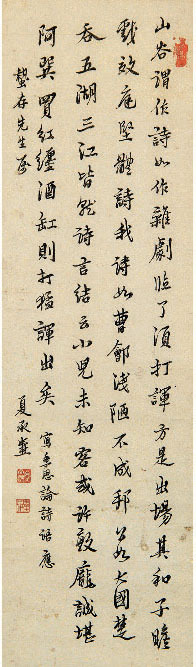 山谷謂作詩如作雜劇臨了須打諢方是出場其和子瞻
戲效庭堅體詩我詩如曹鄶淺陋不成邦公如大國楚
吞五湖三江皆就詩言結云小兒未知客或許敦龐誠堪
阿巽買紅纏酒缸則打猛諢出矣 寫季思論詩語應
蟄存先生屬 夏承燾